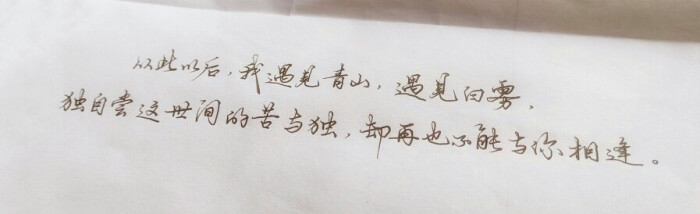 从此以后，我遇见青山，遇见白雾，
独自尝这世间的苦与独，却再也不能与你相逢。